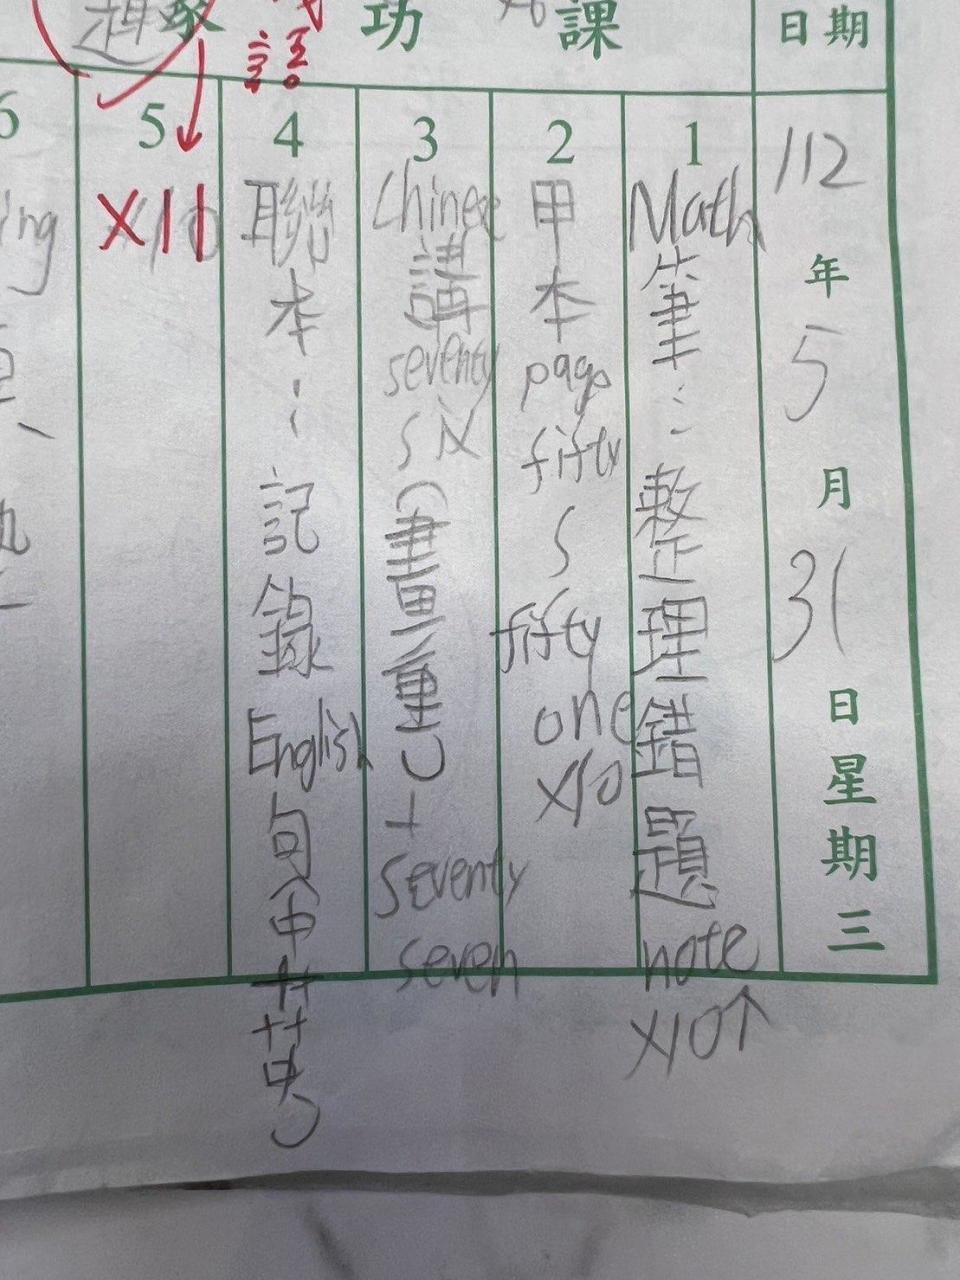 日期
112年5月31日星期三
功課
1
Math筆:整理錯題note x10↑
2
甲本page fifty~fifty one x10
3
Chinese講seventy six(畫重)+seventy seven
4
聯本:記錄English句
5
X11
6
ing